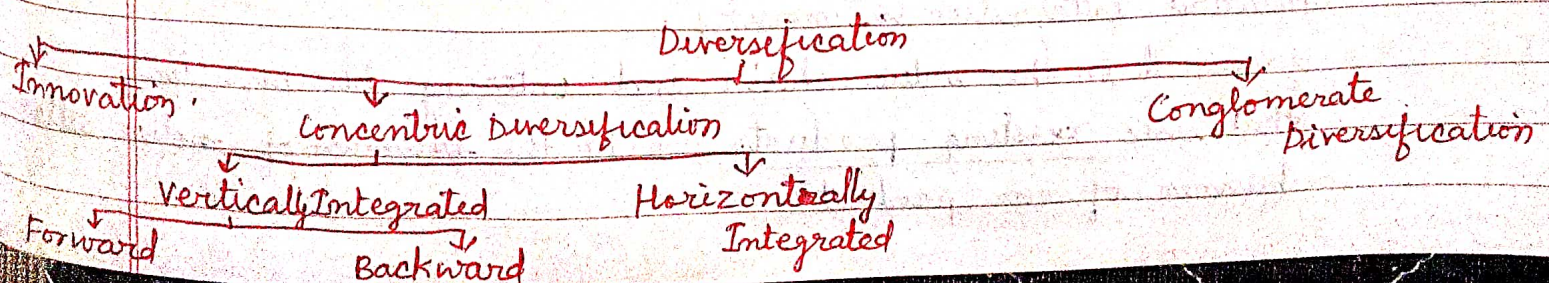 Diversification
Innovation.
Concentric Diversification
Conglomerate
Diversification
Vertically Integrated
Horizontally
Integrated
Forward
Backward